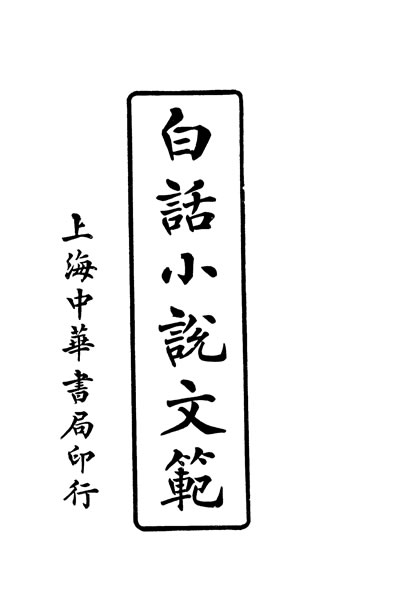 白話小說文範
上海中華書局印行